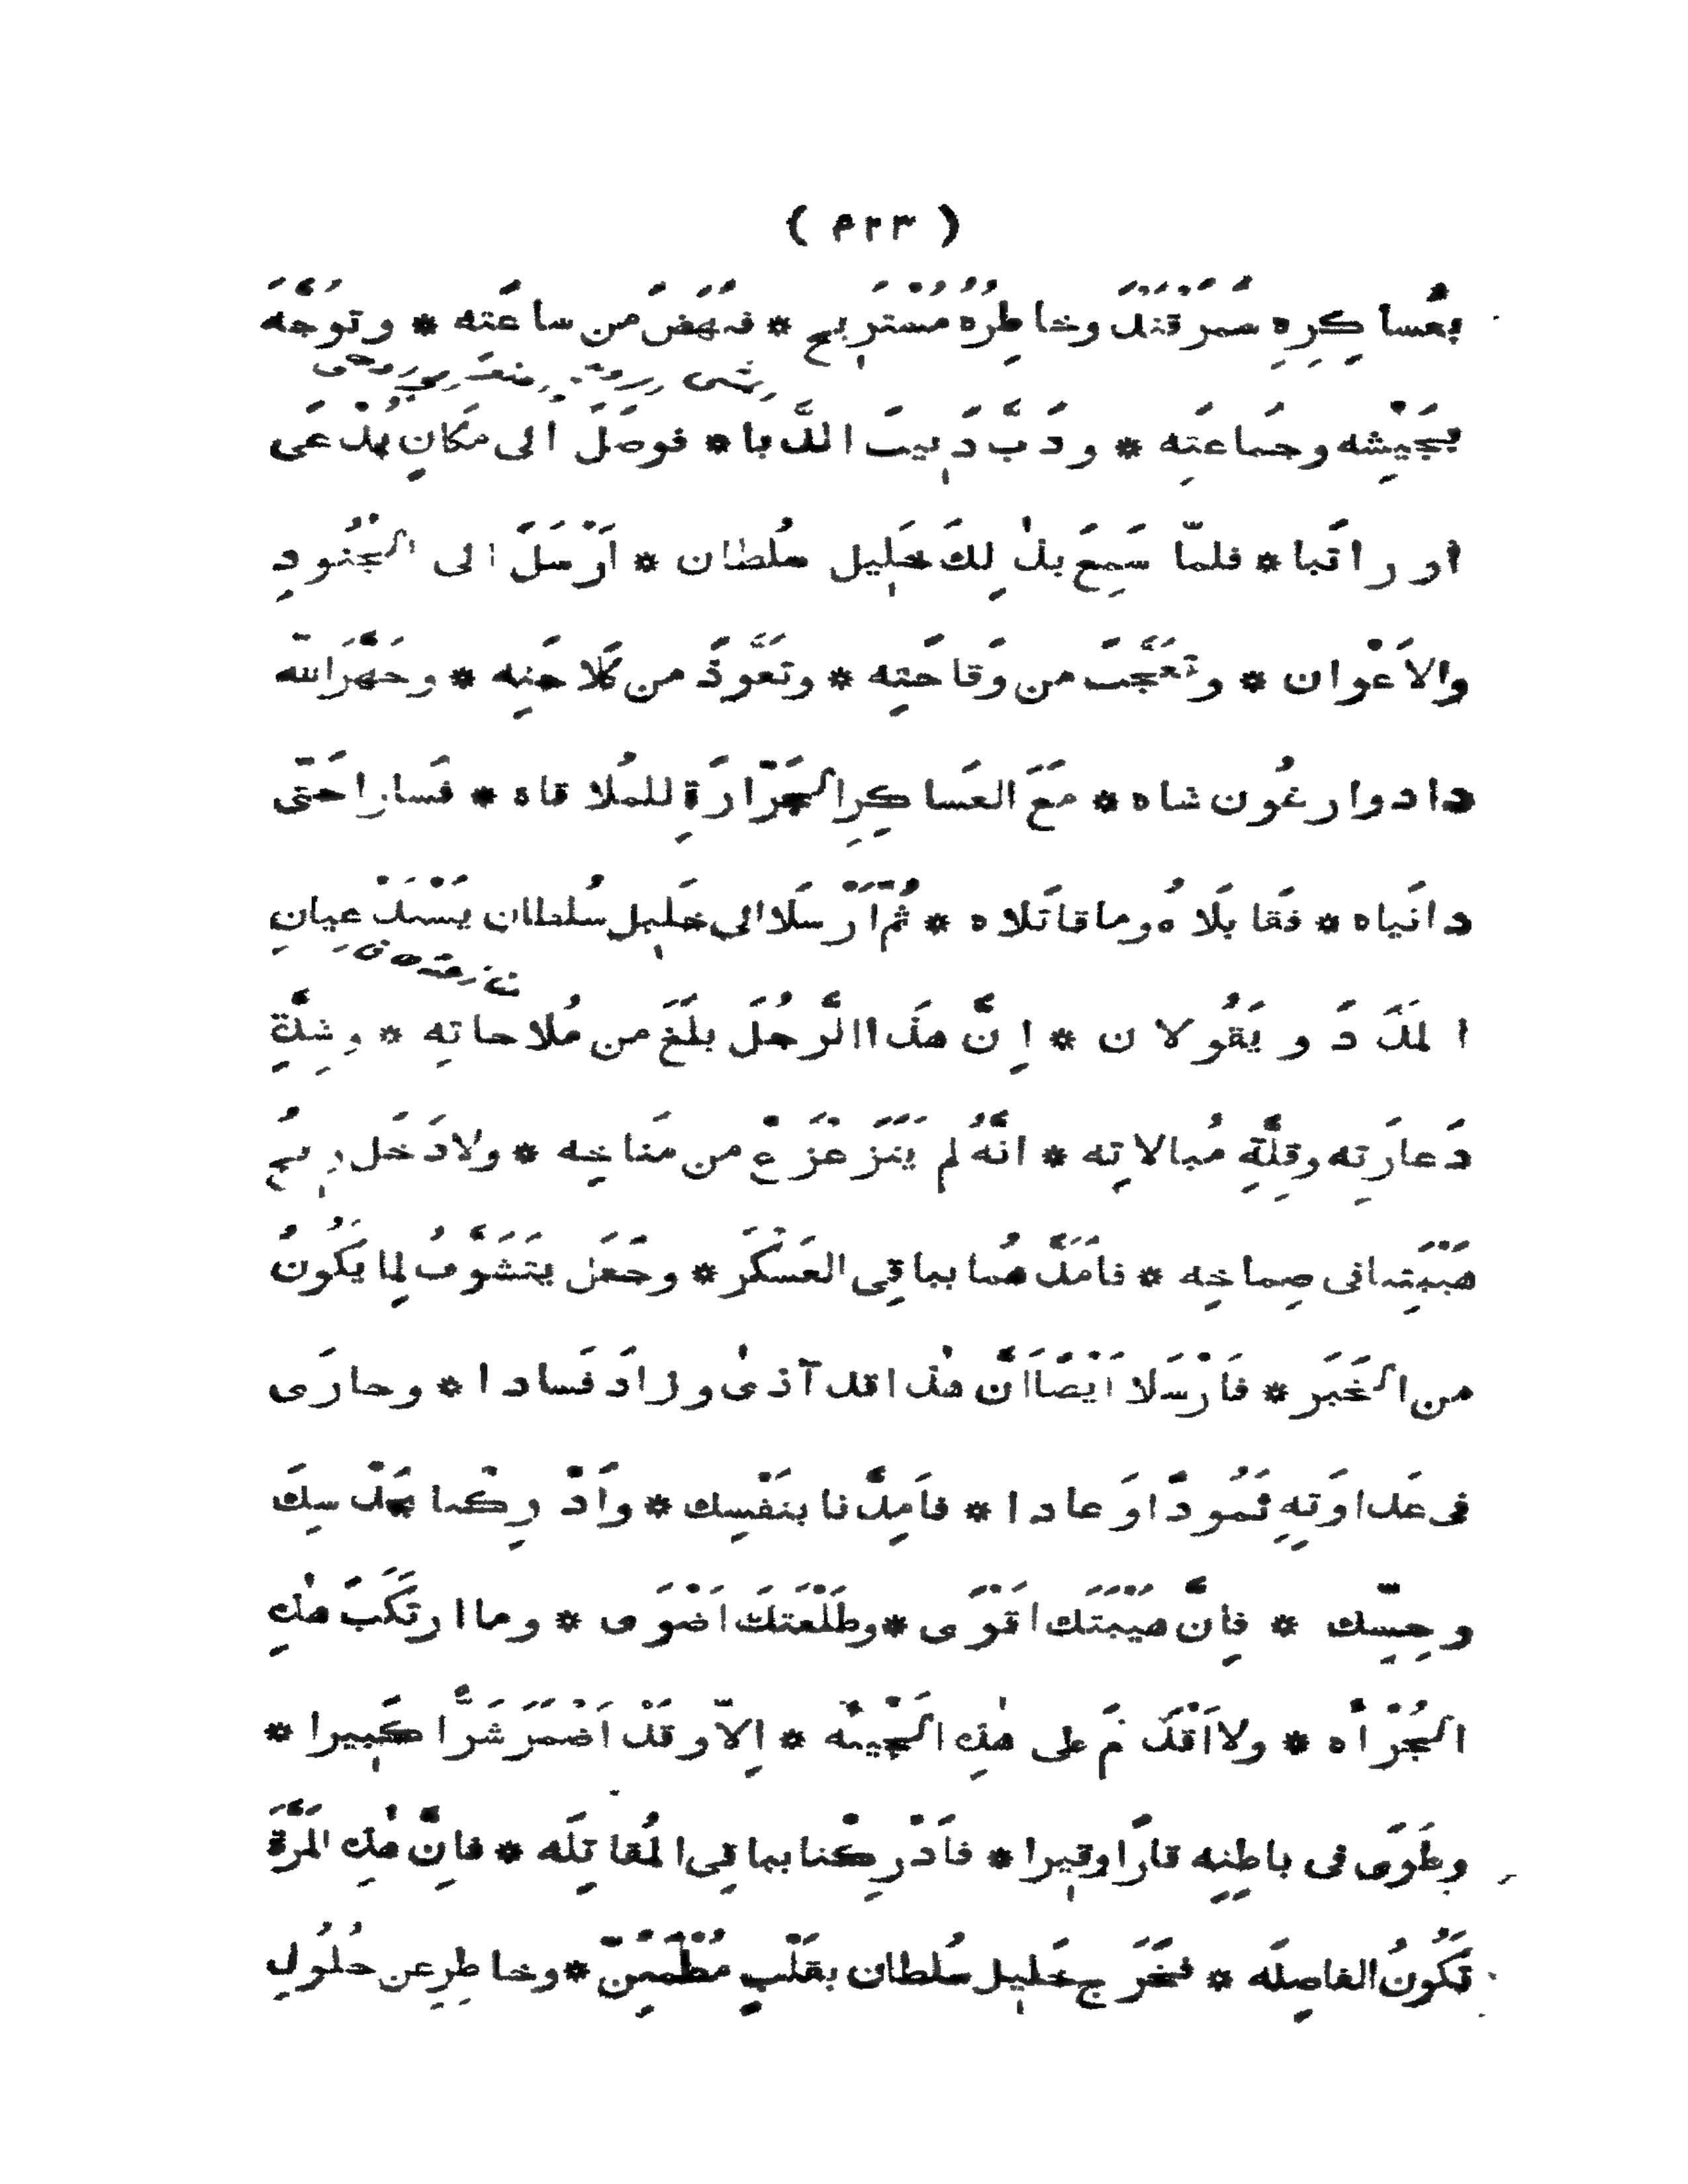 ( ٤٢٣ )
بعَساكِرِه سَمَرْقَنْدَ وخاطِرُه مُسْتَرِيح * فنَهَضَ من ساعَته * وتوَجَّهَ
بجَيْشِه وجَماعتِه * ودَبَّ دَبِيبَ الدَّبا * فوصَلَ الى مكانٍ يُدْعَى
اوراتَبا * فلمّا سَمِعَ بذٰلِكَ خَلِيل سُلطان * اَرْسَلَ الى الجُنُودِ
والاَعْوان * وتَعَجَّبَ من وَقاحَتِه * وتَعَوَّذَ من كَلاحَتِه * وجَهَّرَ اللّٰه
داد وارغُون شاه * مَعَ العَساكِرِ الجَرّارَةِ للمُلاقاه * فسارا حَتّى
دانَياه * فقابَلاهُ وما قاتَلاه * ثُمَّ اَرْسَلا الى خَلِيل سُلطان يَسْتَدْعِيانِ
المَدَدَ ويَقُولان * اِنَّ هذَا الرَّجُلَ بلَغَ من مُلاحاتِه * وشِدّةِ
دَعارَتِه وقِلَّةِ مُبالاتِه * انَّهُ لم يَتَزَعْزَعْ من مَناخِه * ولا دَخَل رِيحُ
هَيْبَتِنا فى صِماخِه * فاَمَدَّهُما بباقِى العَسْكَر * وجَعَل يتَشَوَّفُ لِما يَكُونُ
من الخَبَر * فاَرْسَلا اَيْضًا اَنَّ هٰذا قد آذىٰ وزادَ فَسادا * وحارَى
فى عَداوَتِهِ ثَمُودًا وَعادا * فاَمِدَّنا بنَفْسِك * واَدْرِكْنا بحَدْسِكَ
وحِسِّك * فاِنَّ هَيْبَتَك اَقْوَى * وطَلْعَتَكَ اَضْوَى * وما ارتَكَبَ هٰذِه
الجُرْأَه * ولا اَقْدَمَ على هٰذِه الجَيْئَه * اِلّا وقَدْ اَضْمَرَ شَرًّا كَبِيرا *
وطَوَى فى باطِنِه قارًا وقِيرا * فاَدْرِكْنا بما قِى المُقاتِلَه * فاِنّ هٰذِه المَرَّةَ
تَكُونُ الفاصِلَه * فخَرَج خَلِيل سُلطان بقَلْبٍ مُطْمَئِنّ * وخاطِرٍ عن حُلُولِ